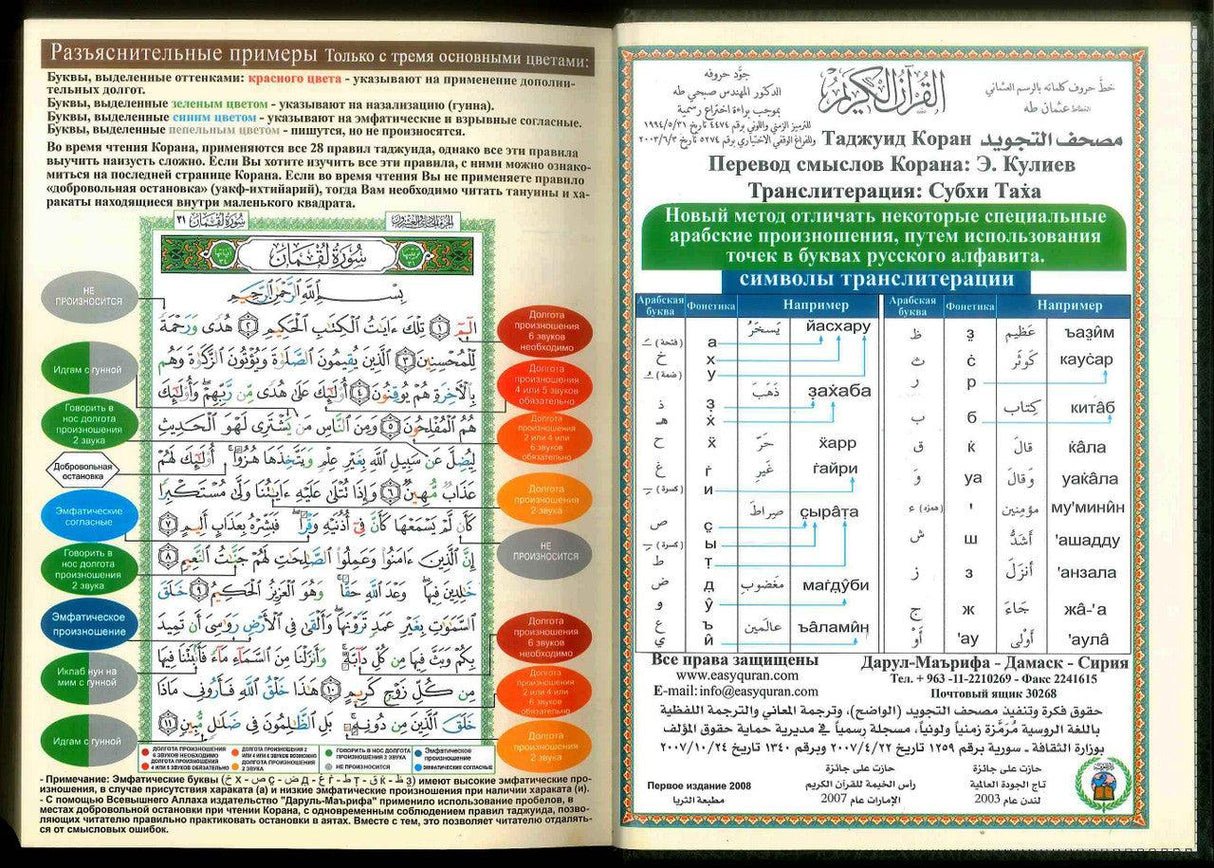 Разъяснительные примеры Только с тремя основными цветами:
Буквы, выделенные оттенками: красного цвета - указывают на применение дополни-
тельных долгот.
Буквы, выделенные зеленым цветом - указывают на назализацию (гунна).
Буквы, выделенные синим цветом - указывают на эмфатические и взрывные согласные.
Буквы, выделенные пепельным цветом - пишутся, но не произносятся.
Во время чтения Корана, применяются все 28 правил таджуида, однако все эти правила
выучить наизусть сложно. Если Вы хотите изучить все эти правила, с ними можно ознако-
миться на последней странице Корана. Если во время чтения Вы не применяете правило
«добровольная остановка» (уакф-ихтийарий), тогда Вам необходимо читать тануины и ха-
ракаты находящиеся внутри маленького квадрата.
سُورَةُ لُقْمَان ٣١
سُورَةُ لُقْمَان
بِسْمِ اللَّهِ الرَّحْمَٰنِ الرَّحِيمِ
الٓمٓ ١ تِلْكَ ءَايَٰتُ ٱلْكِتَٰبِ ٱلْحَكِيمِ ٢ هُدًى وَرَحْمَةً
لِّلْمُحْسِنِينَ ٣ ٱلَّذِينَ يُقِيمُونَ ٱلصَّلَوٰةَ وَيُؤْتُونَ ٱلزَّكَوٰةَ وَهُم
بِٱلْءَاخِرَةِ هُمْ يُوقِنُونَ ٤ أُو۟لَٰٓئِكَ عَلَىٰ هُدًى مِّن رَّبِّهِمْ وَأُو۟لَٰٓئِكَ
هُمُ ٱلْمُفْلِحُونَ ٥ وَمِنَ ٱلنَّاسِ مَن يَشْتَرِى لَهْوَ ٱلْحَدِيثِ
لِيُضِلَّ عَن سَبِيلِ ٱللَّهِ بِغَيْرِ عِلْمٍ وَيَتَّخِذَهَا هُزُوًا أُو۟لَٰٓئِكَ لَهُمْ
عَذَابٌ مُّهِينٌ ٦ وَإِذَا تُتْلَىٰ عَلَيْهِ ءَايَٰتُنَا وَلَّىٰ مُسْتَكْبِرًا
كَأَن لَّمْ يَسْمَعْهَا كَأَنَّ فِىٓ أُذُنَيْهِ وَقْرًا فَبَشِّرْهُ بِعَذَابٍ أَلِيمٍ ٧
إِنَّ ٱلَّذِينَ ءَامَنُوا۟ وَعَمِلُوا۟ ٱلصَّٰلِحَٰتِ لَهُمْ جَنَّٰتُ ٱلنَّعِيمِ ٨
خَٰلِدِينَ فِيهَا وَعْدَ ٱللَّهِ حَقًّا وَهُوَ ٱلْعَزِيزُ ٱلْحَكِيمُ ٩ خَلَقَ
ٱلسَّمَٰوَٰتِ بِغَيْرِ عَمَدٍ تَرَوْنَهَا وَأَلْقَىٰ فِى ٱلْأَرْضِ رَوَٰسِىَ أَن تَمِيدَ
بِكُمْ وَبَثَّ فِيهَا مِن كُلِّ دَآبَّةٍ وَأَنزَلْنَا مِنَ ٱلسَّمَآءِ مَآءً فَأَنۢبَتْنَا فِيهَا
مِن كُلِّ زَوْجٍ كَرِيمٍ ١٠ هَٰذَا خَلْقُ ٱللَّهِ فَأَرُونِى مَاذَا
خَلَقَ ٱلَّذِينَ مِن دُونِهِۦ بَلِ ٱلظَّٰلِمُونَ فِى ضَلَٰلٍ مُّبِينٍ ١١
НЕ
ПРОИЗНОСИТСЯ
Идгам с гунной
Говорить в
нос долгота
произношения
2 звука
Добровольная
остановка
Эмфатические
согласные
Говорить в
нос долгота
произношения
2 звука
Эмфатическое
произношение
Иклаб нун на
мим с гунной
Идгам с гунной
Долгота
произношения
6 звуков
необходимо
Долгота
произношения
4 или 5 звуков
обязательно
Долгота
произношения
2 или 4 или
6 звуков
обязательно
Долгота
произношения
2 звука
НЕ
ПРОИЗНОСИТСЯ
Долгота
произношения
6 звуков
необходимо
Долгота
произношения
2 или 4 или
6 звуков
обязательно
Долгота
произношения
2 звука
ДОЛГОТА ПРОИЗНОШЕНИЯ
6 ЗВУКОВ НЕОБХОДИМО
ДОЛГОТА ПРОИЗНОШЕНИЯ
4 ИЛИ 5 ЗВУКОВ ОБЯЗАТЕЛЬНО
ДОЛГОТА ПРОИЗНОШЕНИЯ 2
ИЛИ 4 ИЛИ 6 ЗВУКОВ ВОЗМОЖНО
ДОЛГОТА ПРОИЗНОШЕНИЯ
2 ЗВУКА
ГОВОРИТЬ В НОС ДОЛГОТА
ПРОИЗНОШЕНИЯ 2 ЗВУКА
НЕ ПРОИЗНОСИТСЯ
Эмфатическое
произношение
ЭМФАТИЧЕСКИЕ СОГЛАСНЫЕ
- Примечание: Эмфатические буквы
имеют высокие эмфатические про-
изношения, в случае присутствия хараката (а) и низкие эмфатические произношения при наличии хараката (и).
- С помощью Всевышнего Аллаха издательство "Даруль-Маърифа" применило использование пробелов, в
местах добровольной остановки при чтении Корана, с одновременным соблюдением правил таджуида, позво-
ляющих читателю правильно практиковать остановки в аятах. Вместе с тем, это позволяет читателю отдалять-
ся от смысловых ошибок.
القرآن الكريم
خطّ حروف كلماته بالرسم العثماني
الخطاط عثمان طه
جوّد حروفه
الدكتور المهندس صبحي طه
بموجب براءة اختراع رسمية
للترميز الزمني واللوني برقم ٤٤٧٤ تاريخ ١٩٩٤/٥/٣١
وللفراغ الوقفي الاختياري برقم ٥٢٧٤ تاريخ ٢٠٠٣/٦/٣
Таджуид Коран مصحف التجويد
Перевод смыслов Корана: Э. Кулиев
Транслитерация: Субхи Таха
Новый метод отличать некоторые специальные
арабские произношения, путем использования
точек в буквах русского алфавита.
символы транслитерации
Арабская буква Фонетика Например
Арабская буква Фонетика Например
(فتحة) а يَسخَرُ йасхару
خ х
(ضمة) у
ذ з̣ ذَهَبَ заẋаба
هـ ẋ
ح ӿ حَرّ ӿарр
غ ѓ غَيرِ ѓайри
(كسرة) и
ص с̣ صِراطَ с̣ырăт̣а
(كسرة) ы
ط т̣
ض д̣ مَغضُوبِ маѓд̣ӯби
و ӯ
ع ъ عالَمين ъăламӣн
ي ӣ
ظ з̣ عَظِيم ъаз̣ӣм
ث ċ كَوثَر кауċар
ر р
ب б كِتاب китâб
ق ќ قالَ ќâла
وَ уа وَقالَ уаќâла
ء (همزة) ' مؤمِنين му'минӣн
ش ш أَشَدُّ 'ашадду
ز з أَنزَلَ 'анзала
ج ж جَاءَ жâ-'а
أَوْ 'ау أَوْلى 'аулâ
Все права защищены
www.easyquran.com
E-mail: info@easyquran.com
Дарул-Маърифа - Дамаск - Сирия
Тел. + 963 -11-2210269 - Факс 2241615
Почтовый ящик 30268
حقوق فكرة وتنفيذ مصحف التجويد (الواضح)، وترجمة المعاني والترجمة اللفظية
باللغة الروسية مُرَمَّزة زمنياً ولونياً، مسجلة رسمياً في مديرية حماية حقوق المؤلف
بوزارة الثقافة - سورية برقم ١٢٥٩ تاريخ ٢٠٠٧/٤/٢٢ وبرقم ١٣٤٠ تاريخ ٢٠٠٧/١٠/٢٤
Первое издание 2008
مطبعة الثريا
حازت على جائزة
رأس الخيمة للقرآن الكريم
الإمارات عام 2007
حازت على جائزة
تاج الجودة العالمية
لندن عام 2003